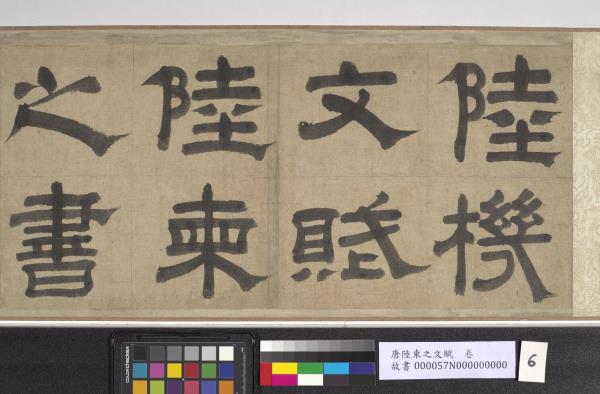 陸機
文賦
陸柬
之書
唐陸柬之文賦 卷
故書 000057N000000000
6